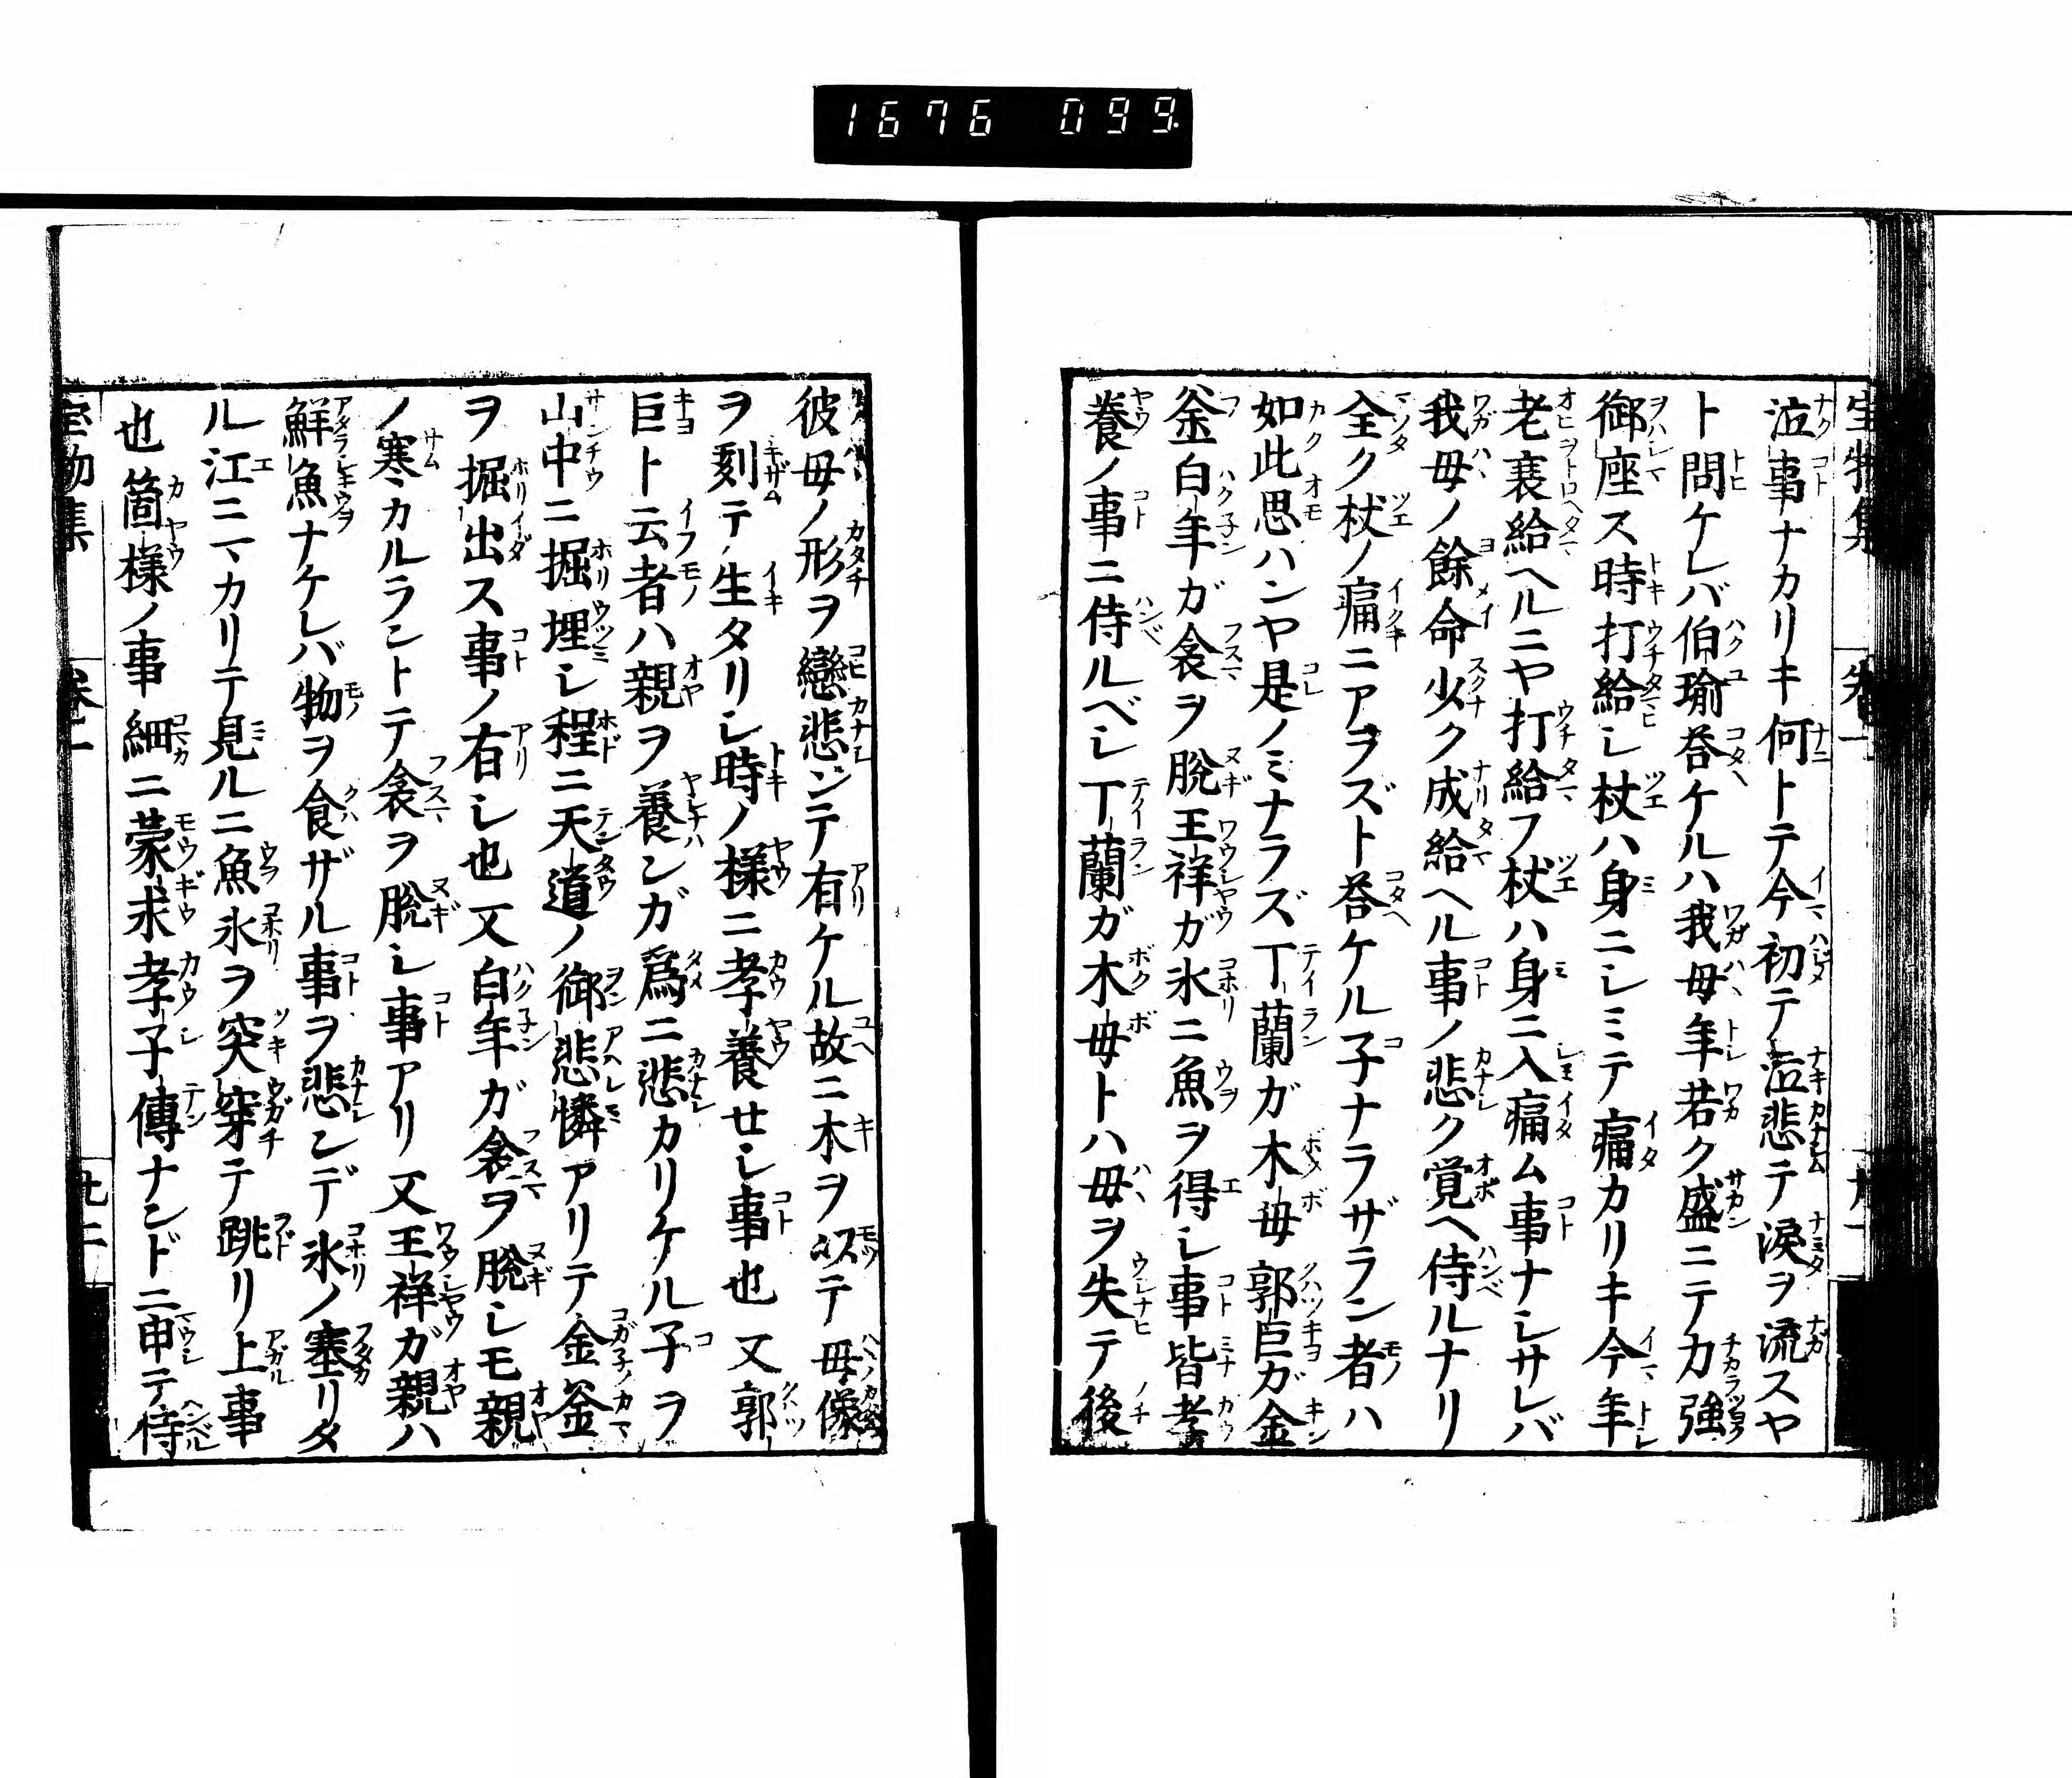 1676 099
泣事ナカリキ何トテ今初テ泣悲テ淚ヲ流スヤ
ト問ケレバ伯瑜荅ケルハ我母年若ク盛ニテ力強
御座ス時打給シ杖ハ身ニシミテ痛カリキ今年
老衰給ヘルニヤ打給フ杖ハ身ニ入痛ム事ナシサレバ
我母ノ餘命少ク成給ヘル事ノ悲ク覚ヘ侍ルナリ
全ク杖ノ痛ニアヲズト荅ケル子ナラザラン者ハ
如此思ハンヤ是ノミナラズ丁蘭ガ木母郭巨ガ金
釜白年ガ衾ヲ脫王祥ガ氷ニ魚ヲ得シ事皆孝
養ノ事ニ侍ルベシ丁蘭ガ木母トハ母ヲ失テ後
彼母ノ形ヲ戀悲ンテ有ケル故ニ木ヲ以テ母像
ヲ刻テ生タリシ時ノ樣ニ孝養せシ事也又郭
巨ト云者ハ親ヲ養ンガ爲ニ悲カリケル子ヲ
山中ニ掘埋シ程ニ天道ノ御悲憐アリテ金釜
ヲ掘出ス事ノ有シ也又白年ガ衾ヲ脫シモ親
ノ寒カルラントテ衾ヲ脫シ事アリ又王祥ガ親ハ
鮮魚ナケレバ物ヲ食ザル事ヲ悲ンデ氷ノ塞リタ
ル江ニマカリテ見ルニ魚氷ヲ突穿テ跳リ上事
也箇樣ノ事細ニ蒙求孝子傳ナンドニ申テ侍